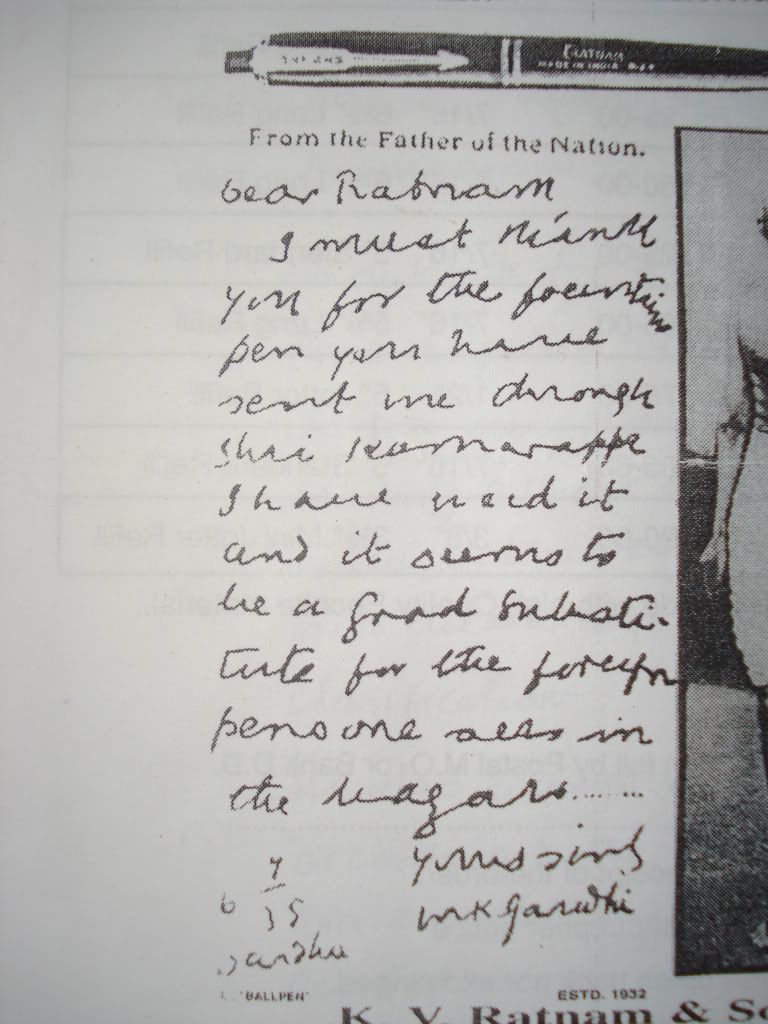 RATNAM
MADE IN INDIA
From the Father of the Nation.
Dear Ratnam
I must thank
you for the fountain
pen you have
sent me through
Shri Kumarappa
I have used it
and it seems to
be a good substi-
tute for the foreign
pens one sees in
the bazars.........
yours sincly
MK Gandhi
"BALLPEN"
ESTD. 1932
K. V. Ratnam & So